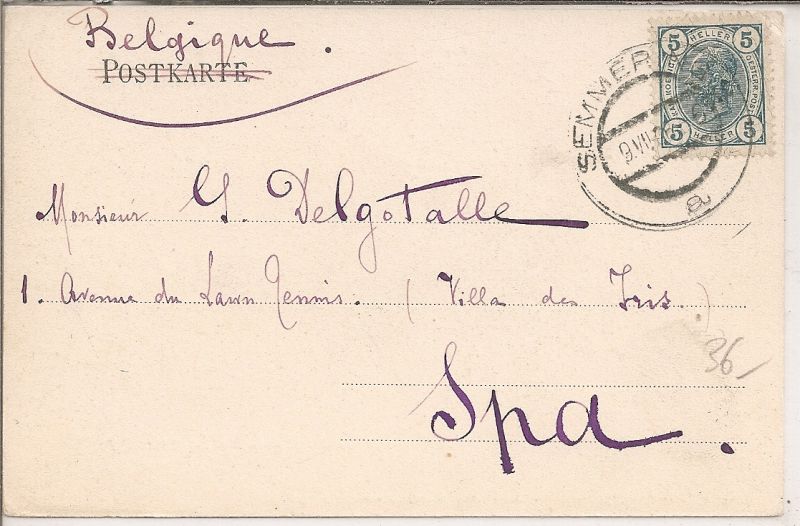 Belgique.
POSTKARTE
5 HELLER 5
5 HELLER 5
SEMMER
9.VII
a
Monsieur G. Delgotalle
1. Avenue du Lawn Tennis. (Villa des Iris.)
36
Spa.